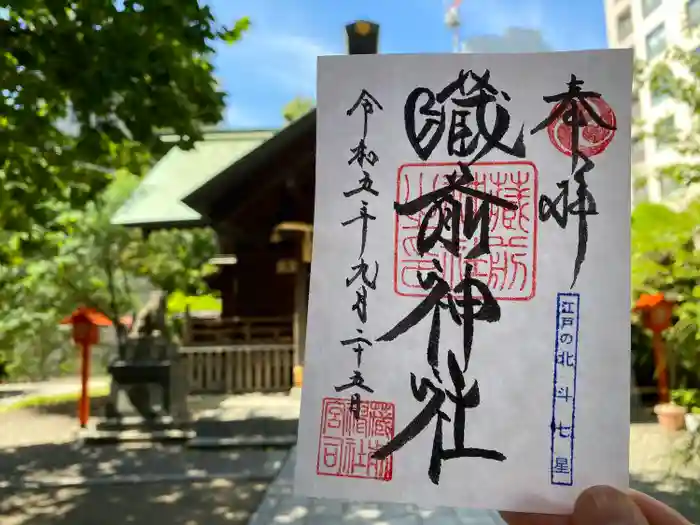 奉拝
江戸の北斗七星
藏前神社
令和五年九月二十五日